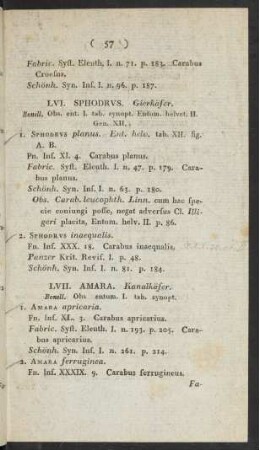 ( 57 )
Fabric. Syſt. Eleuth. I. n. 71. p. 183. Carabus
Croeſus.
Schönh. Syn. Inſ. I. n. 96. p. 187.
LVI. SPHODRVS. Gierkäfer.
Bonell. Obs. ent. I. tab. synopt. Entom. helvet. II.
Gen. XII.
1. Sphodrvs planus. Ent. helv. tab. XII. fig.
A. B.
Fn. Inſ. XI. 4. Carabus planus.
Fabric. Syſt. Eleuth. I. n. 47. p. 179. Cara-
bus planus.
Schönh. Syn. Inſ. n. 63. p. 180.
Obs. Carab. leucophth. Linn. cum hac ſpe-
cie coniungi poſſe, negat adverſus Cl. Illi-
geri placita, Entom. helv. II. p. 86.
2. Sphodrvs inaequalis.
Fn. Inſ. XXX. 18. Carabus inaequalis.
Panzer Krit. Reviſ. I. p. 48.
Schönh. Syn. Inſ. I. n. 81. p. 184.
LVII. AMARA. Kanalkäfer.
Bonell. Obs entom. I. tab. synopt.
1. Amara apricaria.
Fn. Inſ. XL. 3. Carabus apricarius.
Fabric. Syſt. Eleuth. I. n. 193. p. 205. Cara-
bus apricarius.
Schönh. Syn. Inſ. I. n. 261. p. 214.
2. Amara ferruginea.
Fn. Inſ. XXXIX. 9. Carabus ferrugineus.
Fa-